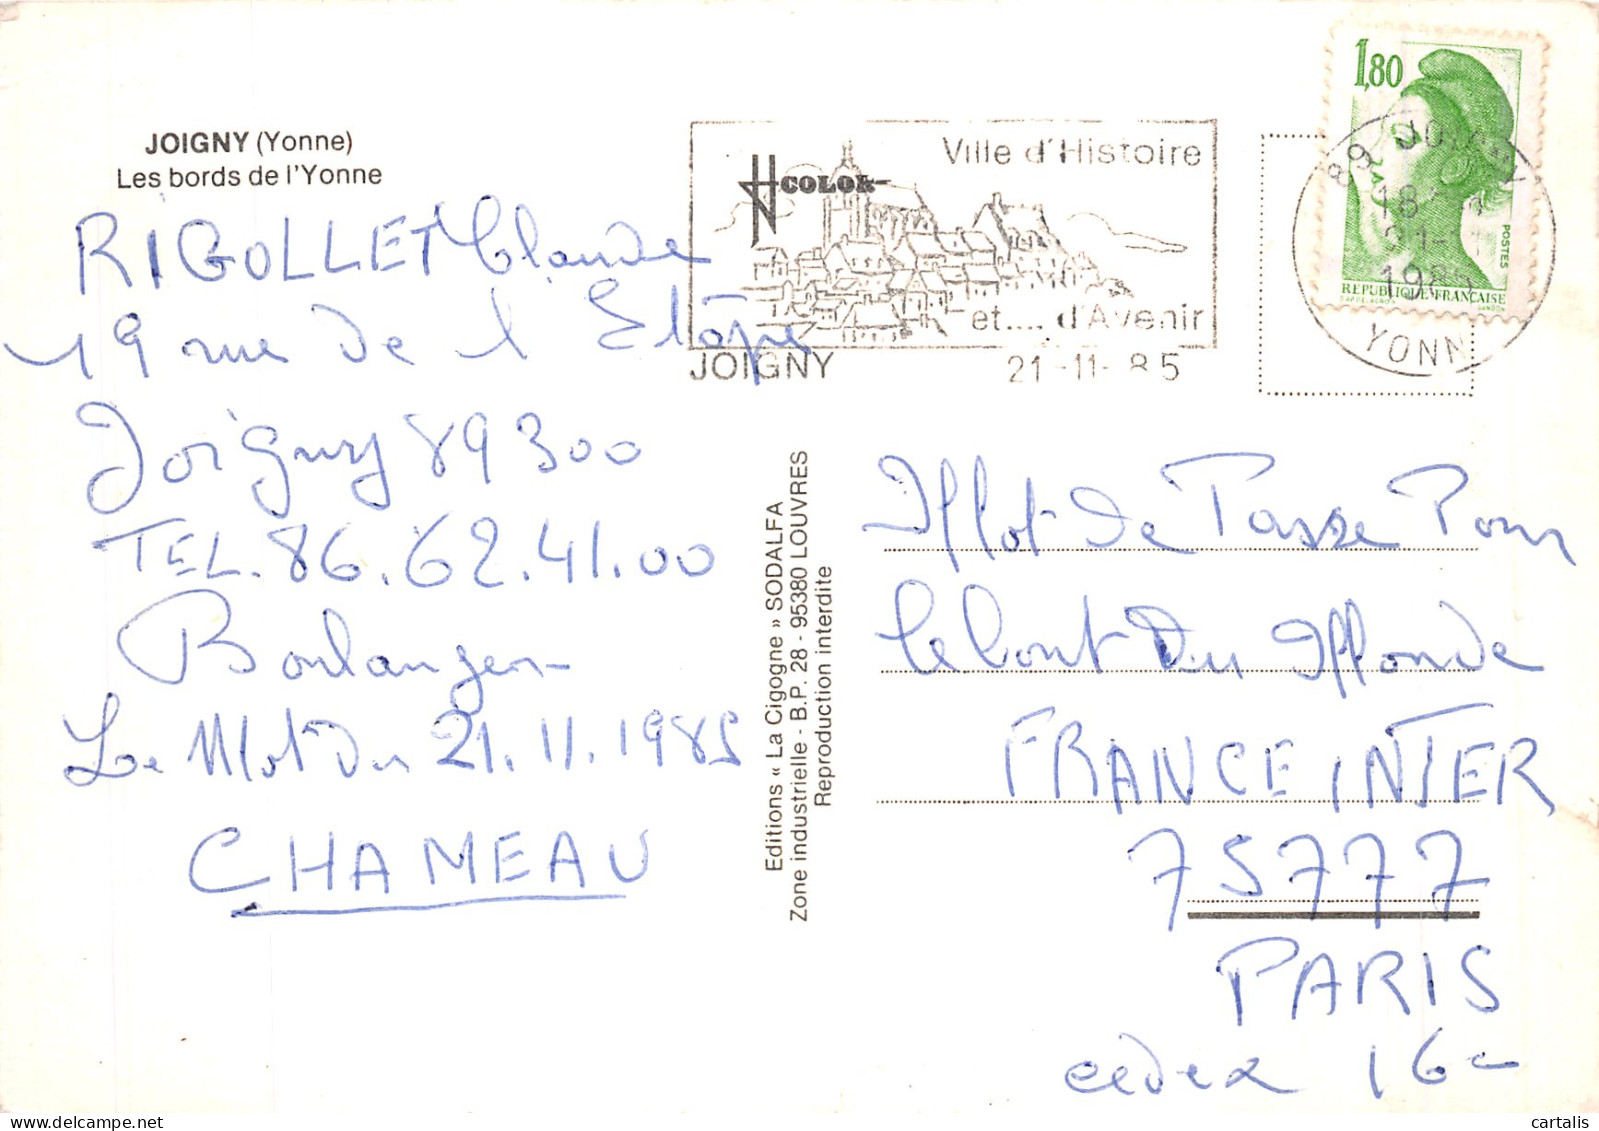 JOIGNY (Yonne)
Les bords de l'Yonne
RIGOLLET Claude
19 rue de l'Etape
Joigny 89300
TEL. 86.62.41.00
Boulanger
Le Mot du 21.11.1985
CHAMEAU
Editions « La Cigogne » SODALFA
Zone industrielle - B.P. 28 - 95380 LOUVRES
Reproduction interdite
COLOR
Ville d'Histoire
et.... d'Avenir
JOIGNY 21-11-85
1,80
POSTES
REPUBLIQUE FRANCAISE
89 JOIGNY
18
21-11
1985
YONNE
Mot de Passe Pour
le bout du Monde
FRANCE INTER
75777
PARIS
cedex 16
cartalis